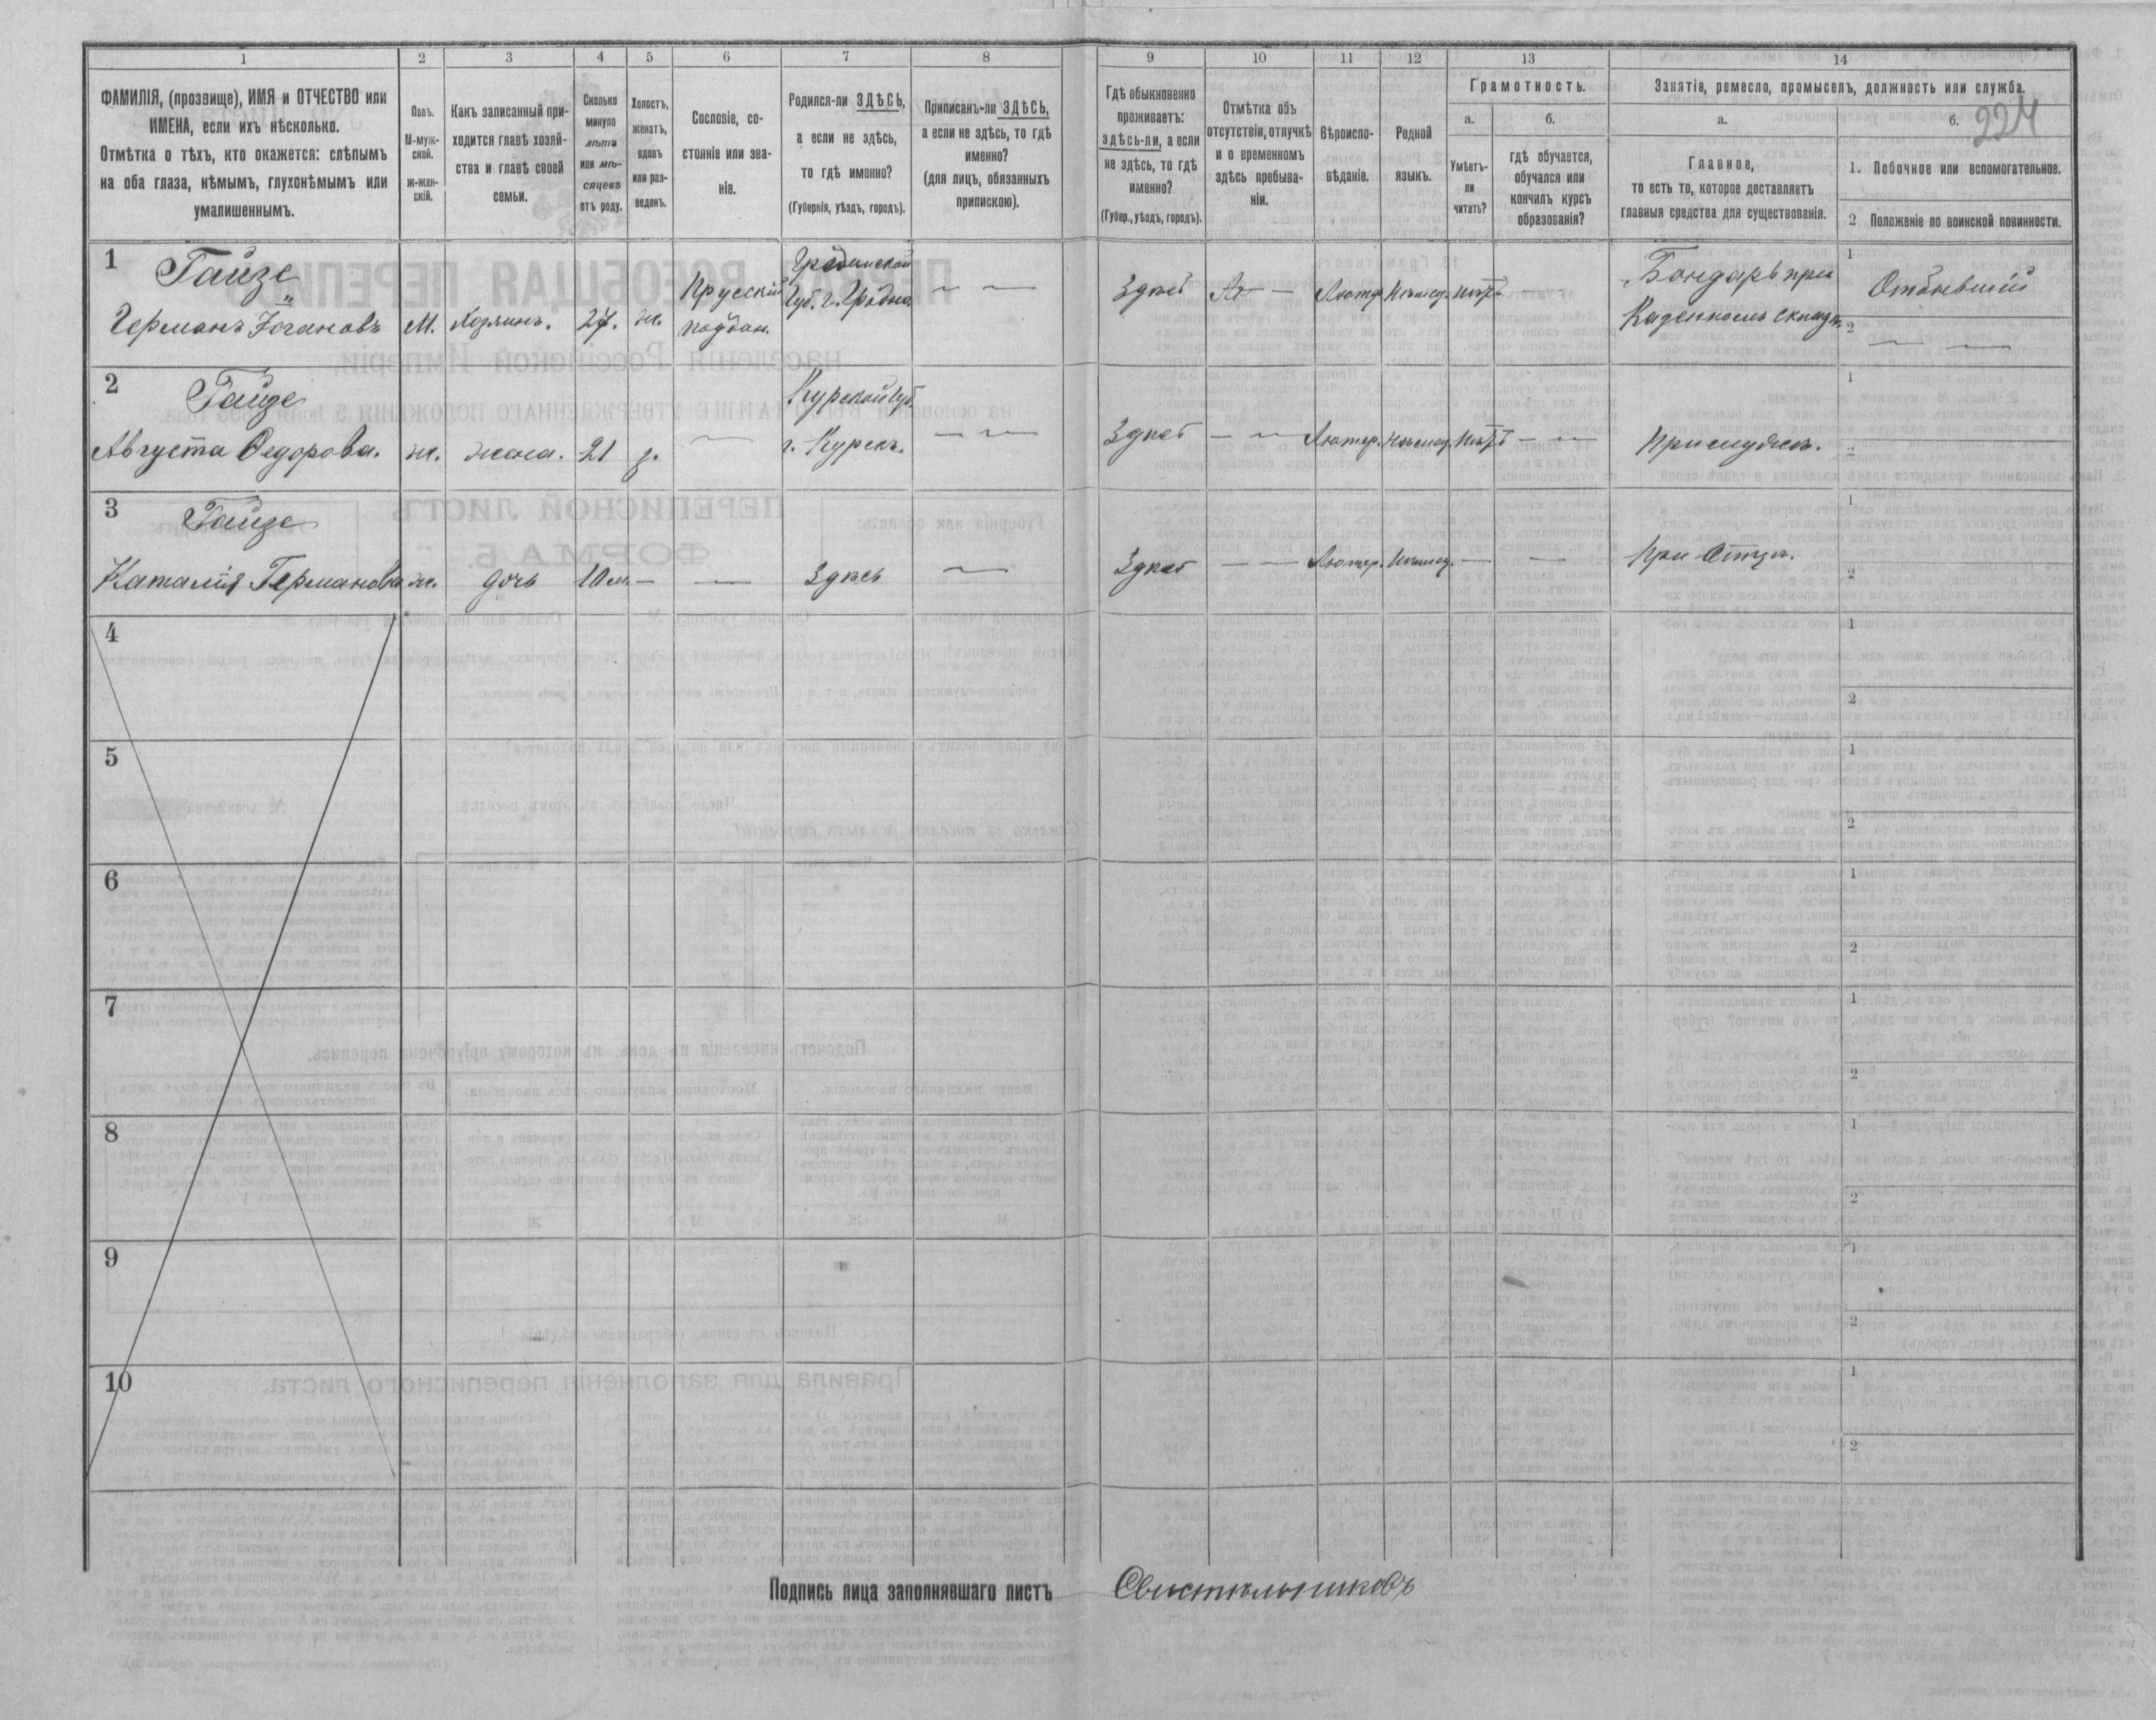 1 2 3 4 5 6 7 8 9 10 11 12 13 14
ФАМИЛІЯ, (прозвище), ИМЯ и ОТЧЕСТВО или
ИМЕНА, если ихъ нѣсколько.
Отмѣтка о тѣхъ, кто окажется: слѣпымъ
на оба глаза, нѣмымъ, глухонѣмымъ или
умалишеннымъ.
Полъ.
М-муж-
ской.
Ж-жен-
скій.
Какъ записанный при-
ходится главѣ хозяй-
ства и главѣ своей
семьи.
Сколько
минуло
лѣтъ
или мѣ-
сяцевъ
отъ роду.
Холостъ,
женатъ,
вдовъ
или раз-
веденъ.
Сословіе, со-
стояніе или зва-
ніе.
Родился-ли ЗДѢСЬ,
а если не здѣсь,
то гдѣ именно?
(Губернія, уѣздъ, городъ).
Приписанъ-ли ЗДѢСЬ,
а если не здѣсь, то гдѣ
именно?
(для лицъ, обязанныхъ
припискою).
Гдѣ обыкновенно
проживаетъ:
здѣсь-ли, а если
не здѣсь, то гдѣ
именно?
(Губер., уѣздъ, городъ).
Отмѣтка объ
отсутствіи, отлучкѣ
и о временномъ
здѣсь пребыва-
ніи.
Вѣроиспо-
вѣданіе.
Родной
языкъ.
Грамотность.
а.
Умѣетъ-
ли
читать?
б.
гдѣ обучается,
обучался или
кончилъ курсъ
образованія?
Занятіе, ремесло, промыселъ, должность или служба.
а.
Главное,
то есть то, которое доставляетъ
главныя средства для существованія.
б.
224
1. Побочное или вспомогательное.
2 Положеніе по воинской повинности.
1 Гайзе
Германъ Югановъ М. Хозяинъ. 27. ж. Прусскій поддан. Гродненской Губ. г. Гродна. — — Здѣсь — Лютер. Нѣмец. нѣтъ — Бондарь при Казенномъ складѣ
1
2 — —
2 Гайзе
Августа Ѳедорова. ж. жена. 21 з. — Курской Губ. г. Курскъ. — — Здѣсь — — Лютер. Нѣмец. нѣтъ — — При мужѣ.
1
2
3 Гайзе
Наталія Германова ж. дочь 10 м. — — Здѣсь — Здѣсь — — Лютер. Нѣмец. — — При Отцѣ.
1
2
4
1
2
5
1
2
6
1
2
7
1
2
8
1
2
9
1
2
10
1
2
Подпись лица заполнявшаго листъ Свистѣльниковъ